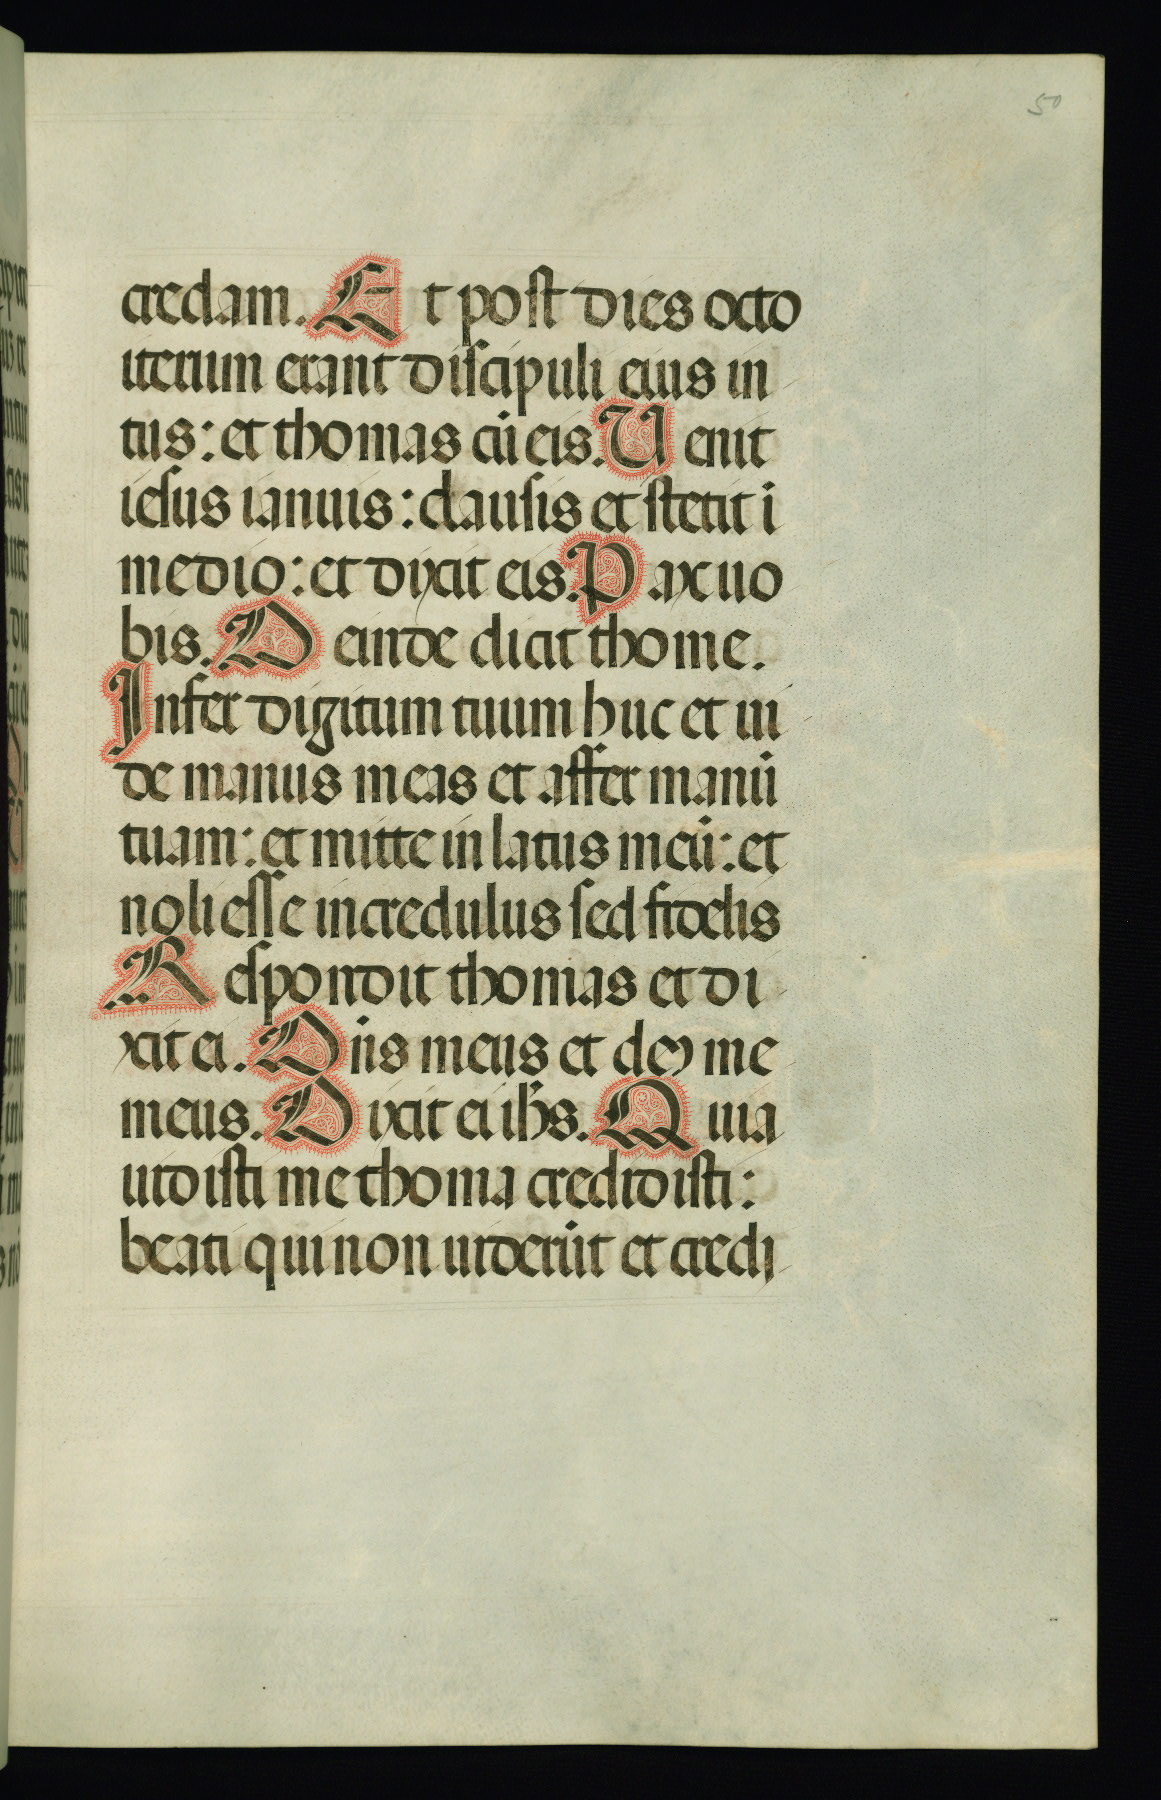 50
credam. Et post dies octo
iterum erant discipuli eius in
tus: et thomas cū eis. Uenit
iesus ianuis: clausis et stetit ī
medio: et dixit eis. Pax uo
bis. Deinde dicit thome.
Infer digitum tuum huc et ui
de manus meas et affer manū
tuam: et mitte in latus meū: et
noli esse incredulus sed fidelis
Respondit thomas et di
xit ei. Dn̄s meus et deꝰ me
meus. Dixit ei ih̄s. Quia
uidisti me thoma credidisti:
beati qui non uiderūt et credi